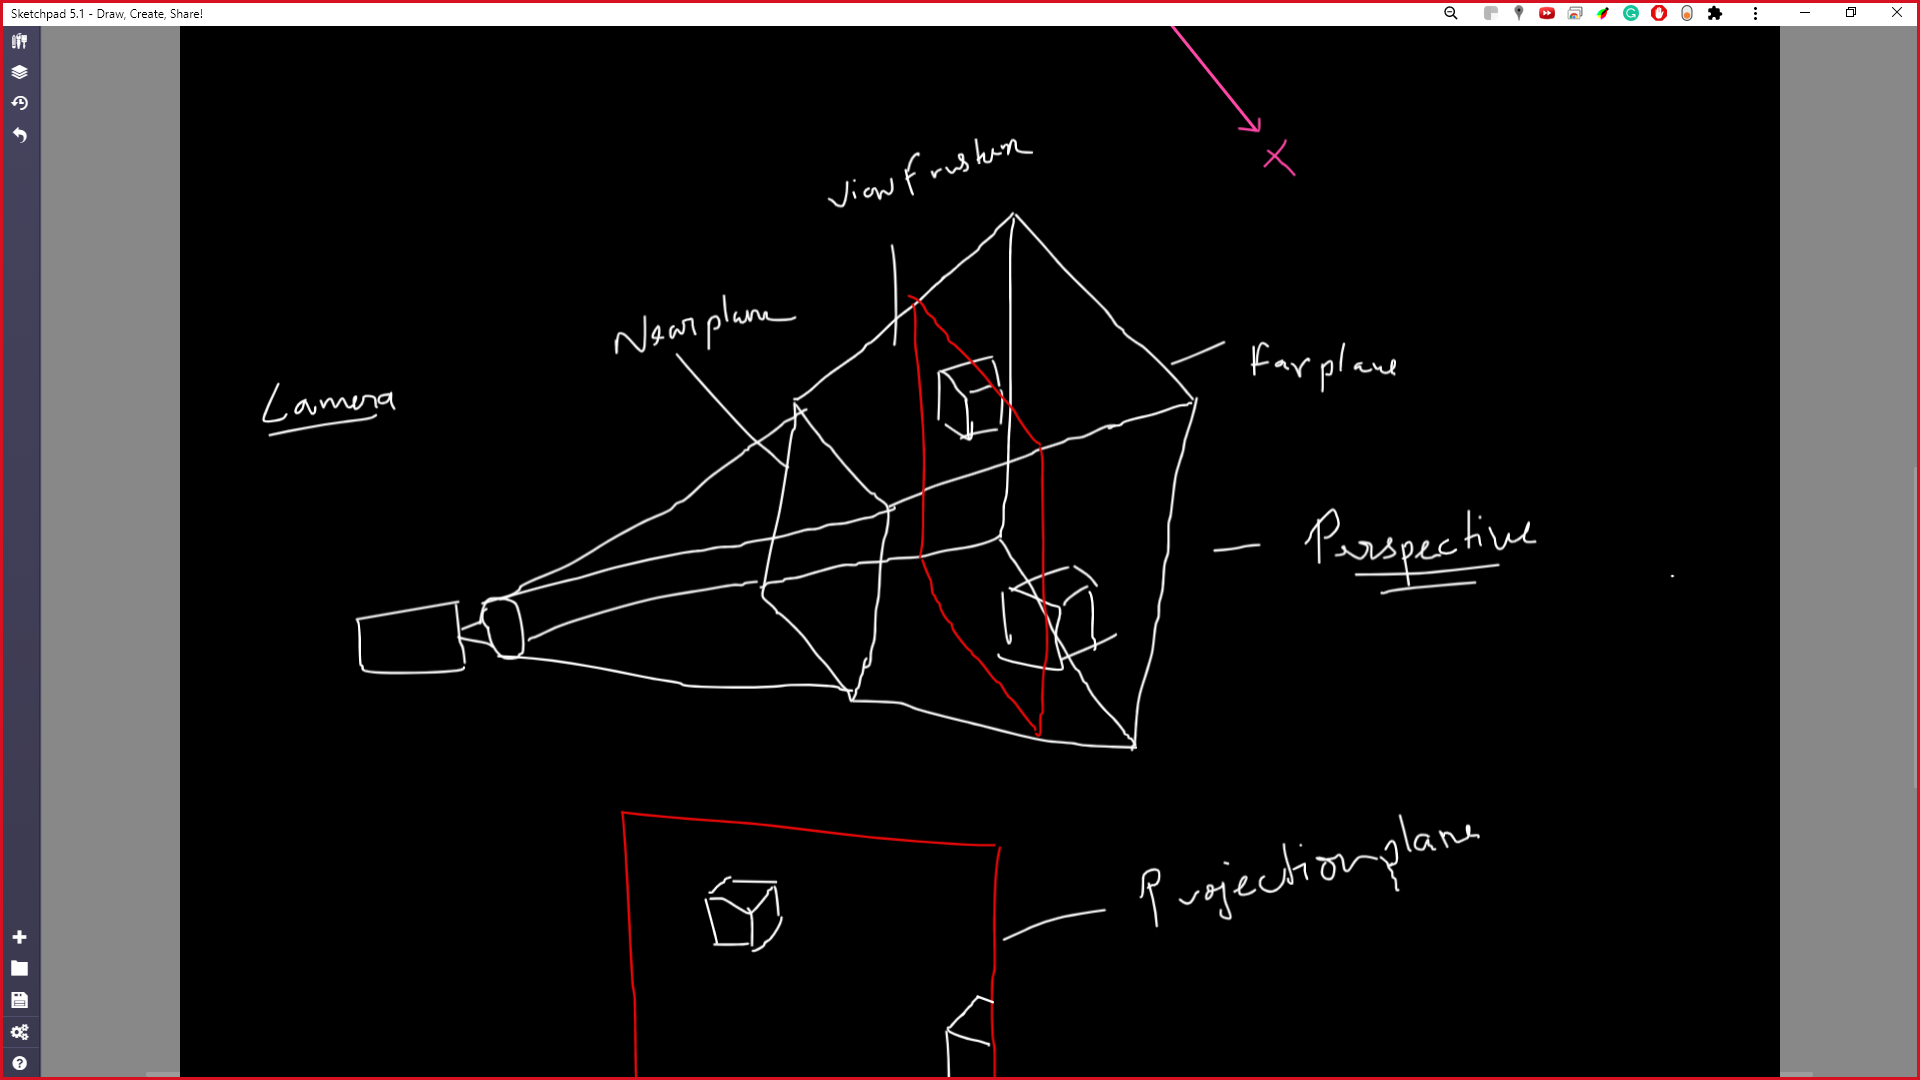 Sketchpad 5.1 - Draw, Create, Share!
X
View frustum
Near plane
Far plane
Camera
Perspective
Projection plane